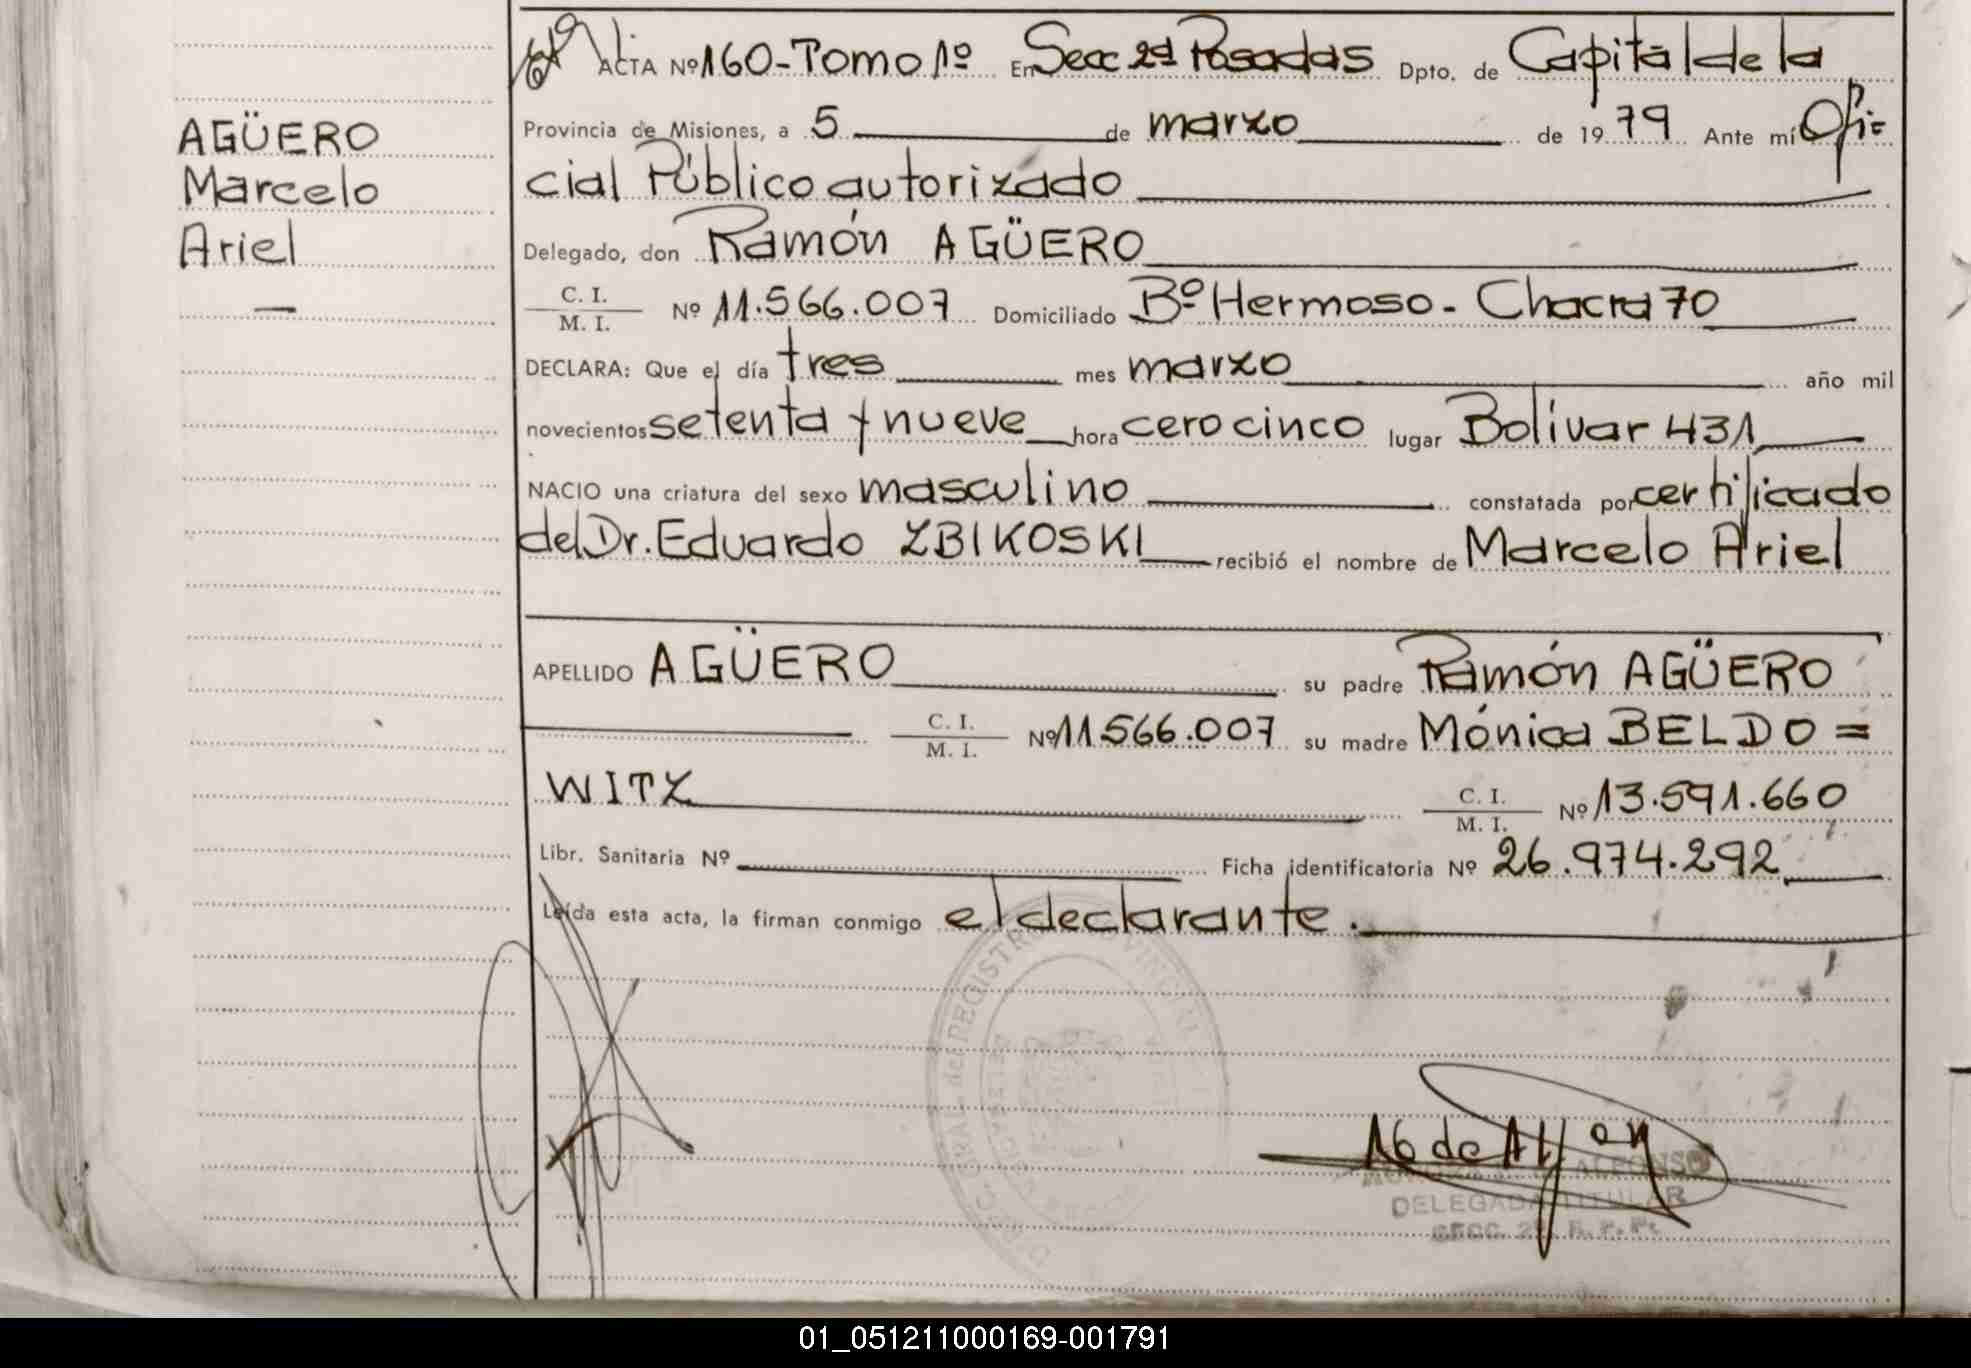 ACTA Nº 160 - Tomo 1º En Secc 2ª Posadas Dpto. de Capital de la
AGÜERO
Marcelo
Ariel
Provincia de Misiones, a 5 de marzo de 1979 Ante mí Ofi=
cial Público autorizado
Delegado, don Ramón AGÜERO
C. I.
M. I. Nº 11.566.007 Domiciliado Bº Hermoso - Chacra 70
DECLARA: Que el día tres mes marzo año mil
novecientos setenta y nueve hora cero cinco lugar Bolívar 431
NACIO una criatura del sexo masculino constatada por certificado
del Dr. Eduardo ZBIKOSKI recibió el nombre de Marcelo Ariel
APELLIDO AGÜERO su padre Ramón AGÜERO
C. I.
M. I. Nº 11.566.007 su madre Mónica BELDO=
WITZ C. I.
M. I. Nº 13.591.660
Libr. Sanitaria Nº Ficha identificatoria Nº 26.974.292
Leída esta acta, la firman conmigo el declarante.
ALFONSO
DELEGADA TITULAR
SECC. 2ª R. P. P.
01_051211000169-001791